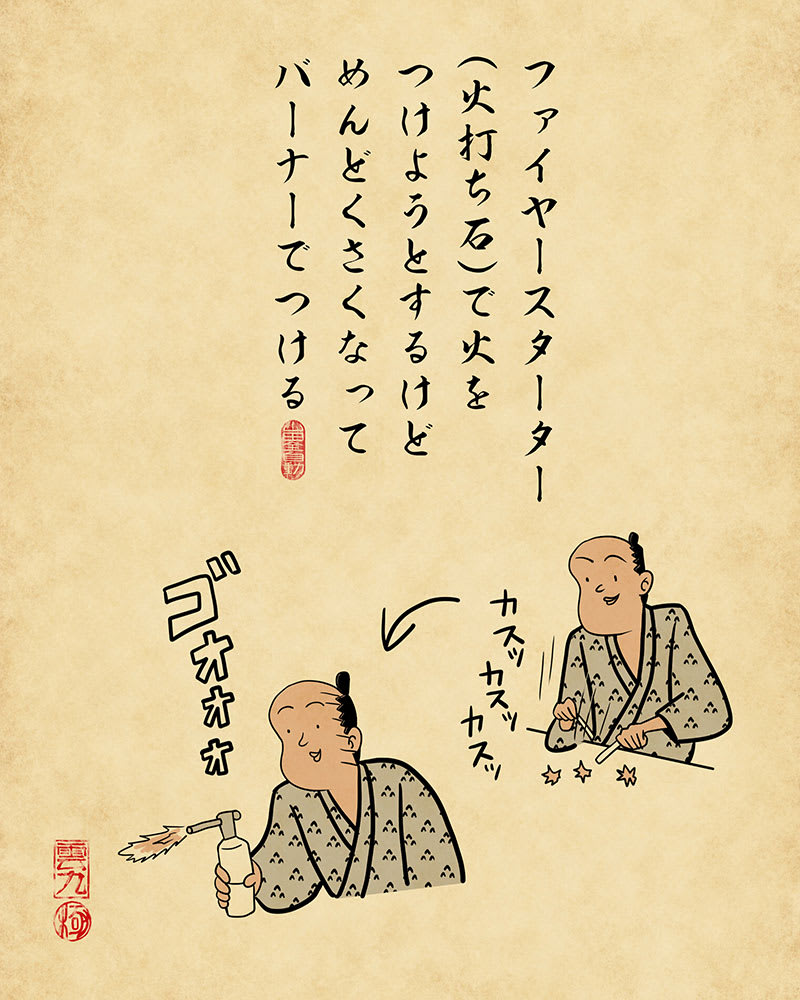 ファイヤースターター
（火打ち石）で火を
つけようとするけど
めんどくさくなって
バーナーでつける
カスッ
カスッ
カスッ
ゴォォォ